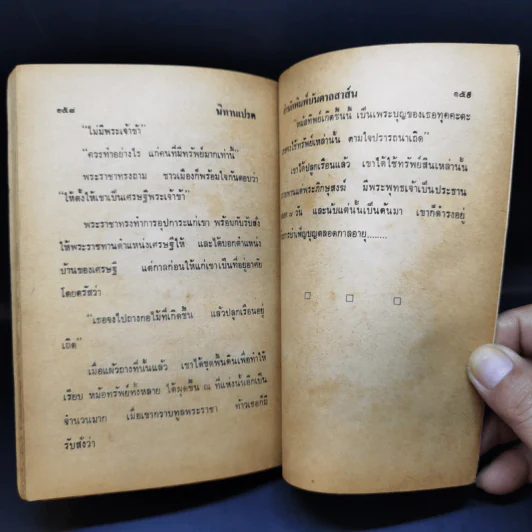 ๑๕๘ นิทานเปรต
"ไม่มีพระเจ้าข้า"
"ควรทำอย่างไร แก่คนที่มีทรัพย์มากเท่านี้"
พระราชาทรงถาม ชาวเมืองก็พร้อมใจกันตอบว่า
"ให้ตั้งให้เขาเป็นเศรษฐีพระเจ้าข้า"
พระราชาทรงทำการอุปการะแก่เขา พร้อมกับรับสั่ง
ให้พระราชทานตำแหน่งเศรษฐีให้ และได้บอกตำแหน่ง
บ้านของเศรษฐี แต่กาลก่อนให้แก่เขาเป็นที่อยู่อาศัย
โดยตรัสว่า
"เธอจงไปถางกอไม้ที่เกิดขึ้น แล้วปลูกเรือนอยู่
เถิด"
เมื่อแผ้วถางที่นั้นแล้ว เขาได้ขุดพื้นดินเพื่อทำให้
เรียบ หม้อทรัพย์ทั้งหลาย ได้ผุดขึ้น ณ ที่แห่งนั้นอีกเป็น
จำนวนมาก เมื่อเขากราบทูลพระราชา ท้าวเธอก็มี
รับสั่งว่า
สำนักพิมพ์บันดาลสาส์น ๑๕๙
"หม้อทรัพย์เกิดขึ้นนี้ เป็นเพราะบุญของเธอทุคคะตะ
ใช้ทรัพย์เหล่านั้น ตามใจปรารถนาเถิด"
เขาได้ปลูกเรือนแล้ว เขาได้ใช้ทรัพย์สินเหล่านั้น
แด่พระภิกษุสงฆ์ มีพระพุทธเจ้าเป็นประธาน
๗ วัน และนับแต่นั้นเป็นต้นมา เขาก็ดำรงอยู่
การบำเพ็ญบุญตลอดกาลอายุ........